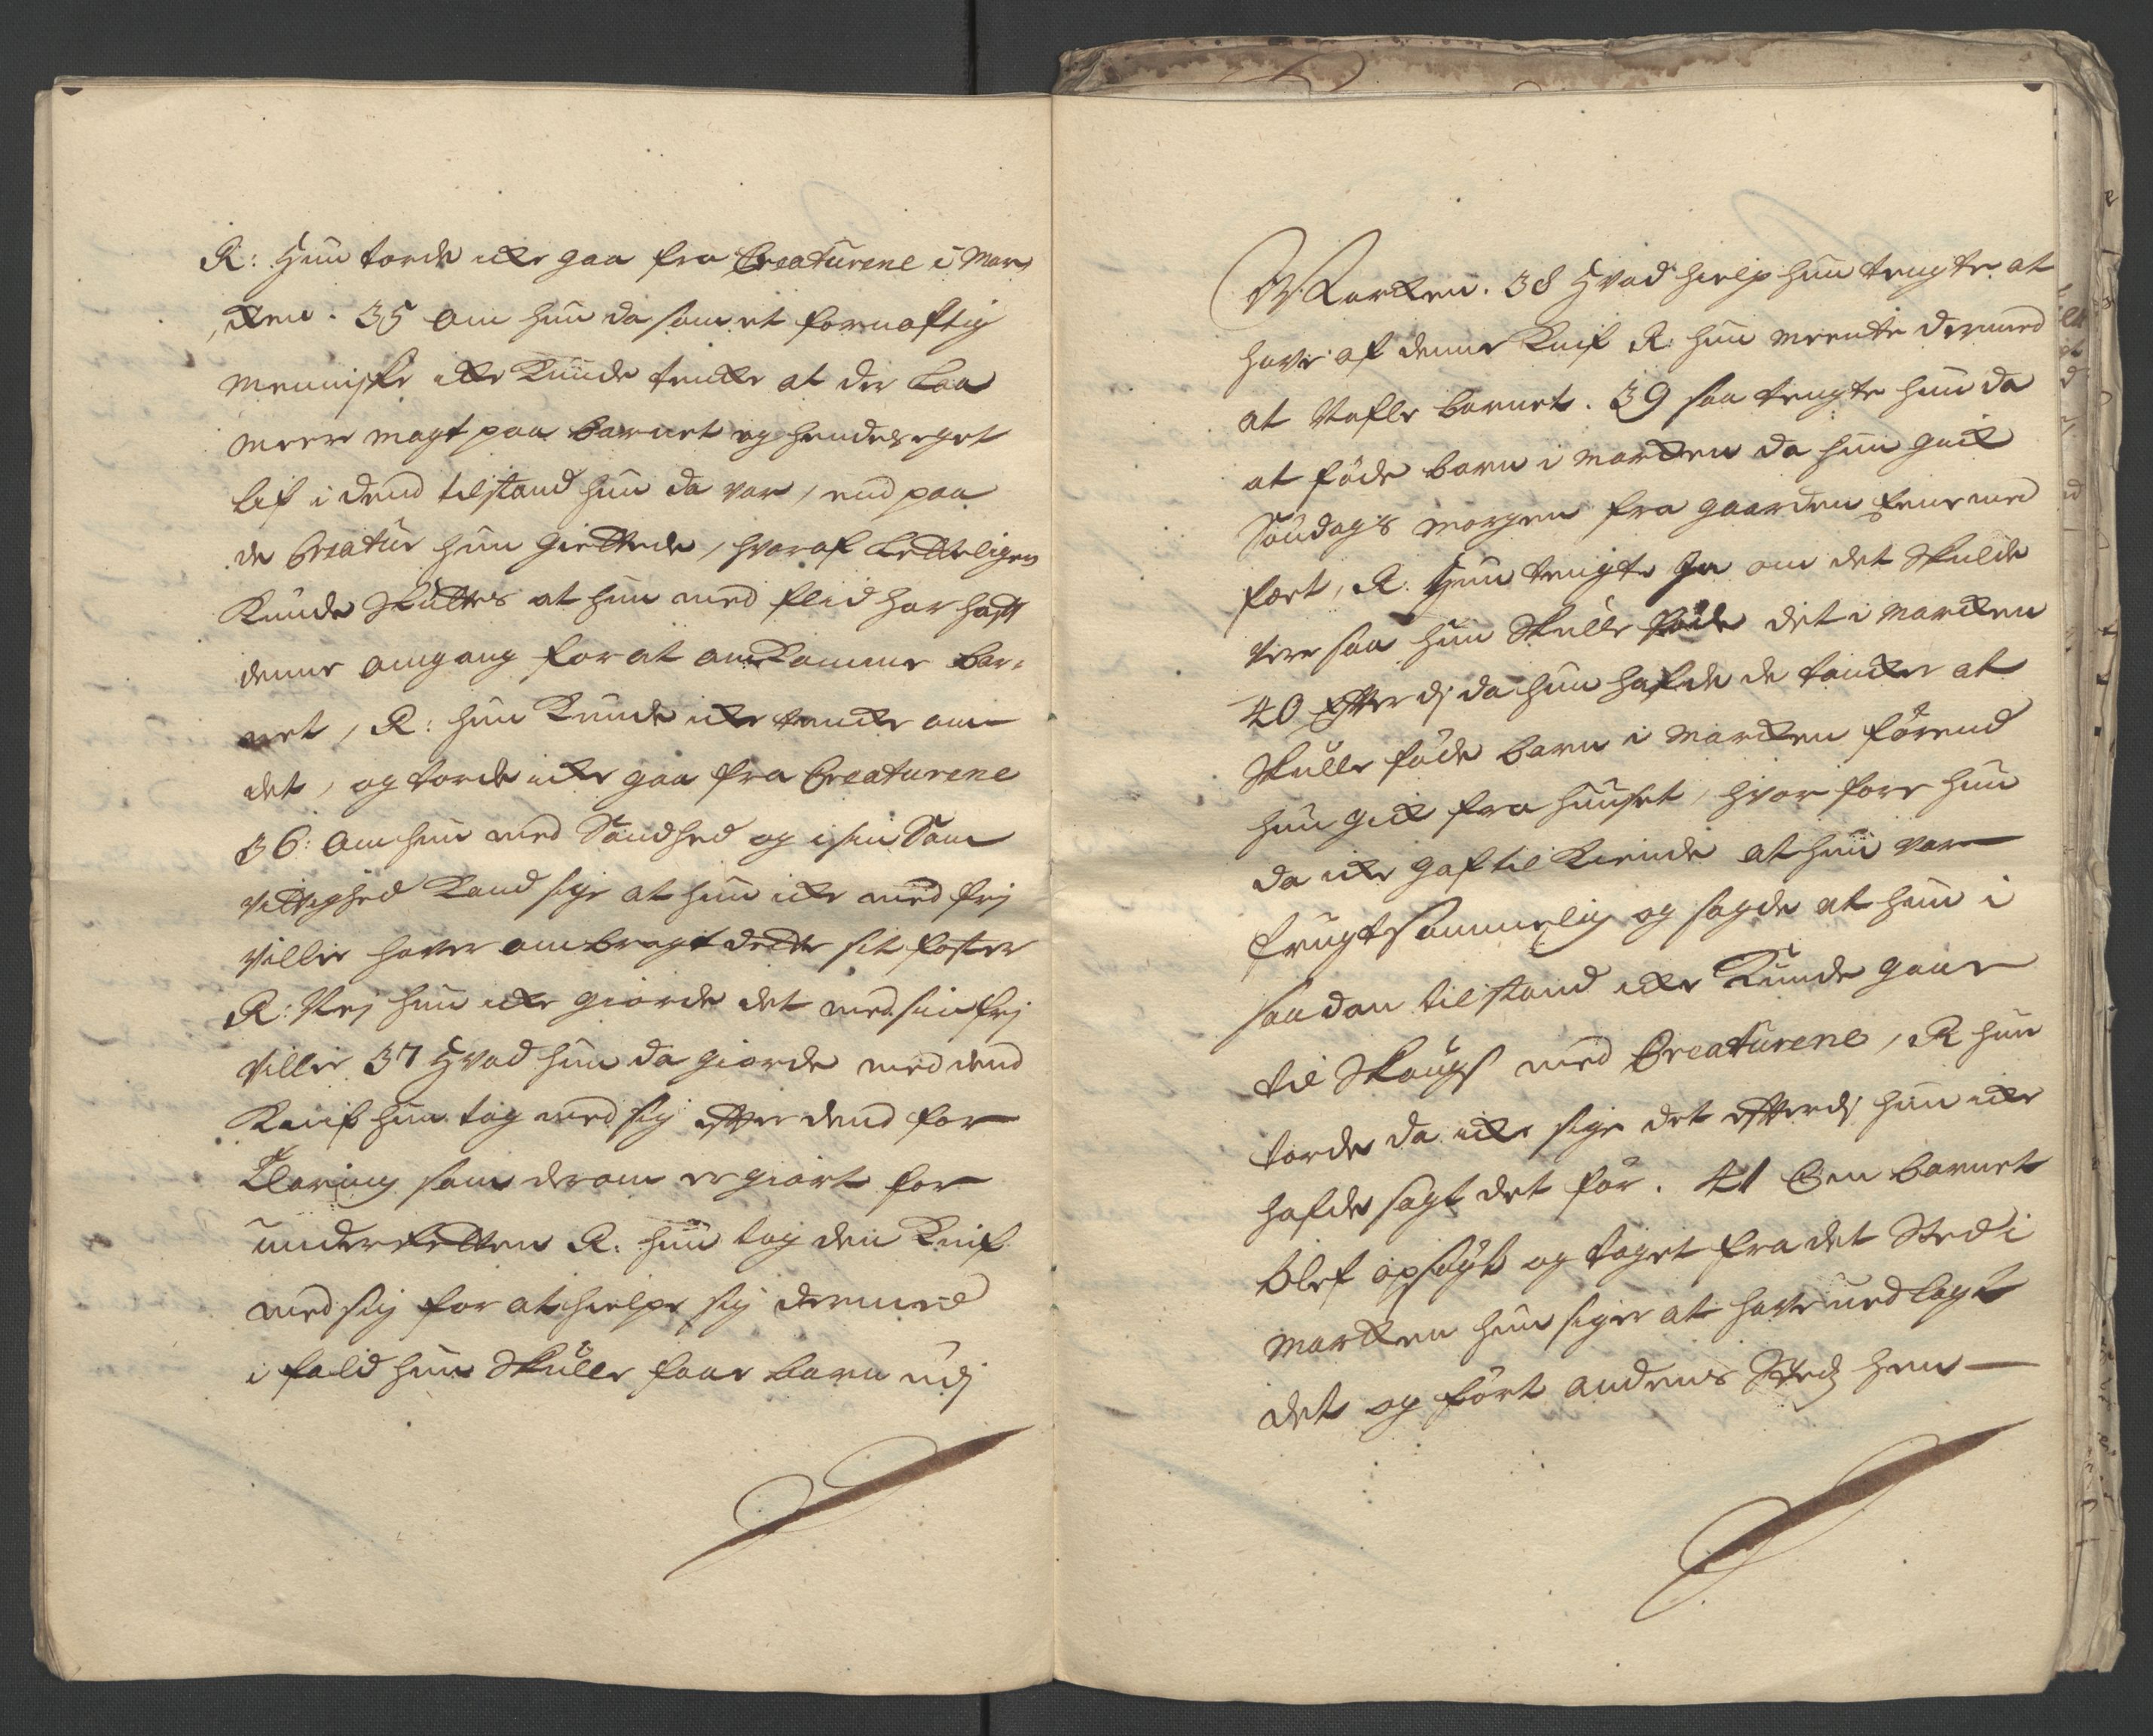 R: Hun torde icke gaa fra Creaturene i Mar,
,cken. 35 Om hun da som et fornuftig
Menniske icke kunde tencke at der Laa
meere magt paa barnet og hendes eget
lif i dend tilstand hun da var, end paa
de Creatur hun giettede, hvoraf Letteligen
Kunde Sluttes at hun med flid har hafft
denne omgang for at omkomme bar,
net, R: hun Kunde icke tencke om
det, og torde icke gaa fra Creaturene
36: Om hun med Sandhed og i sin Sam
vittighed Kand sige at hun icke med frj
villie haver ombragt dette sit foster
R: Nej hun icke giorde det med sin frj
villie 37 Hvad hun da giorde med dend
Knif hun tog med sig efter dend for
Klaring som derom er giort for
underretten R: hun tog den Knif
med sig for at hielpe sig dermed
i fald hun Skulle faae barn udj
Marcken. 38 Hvad hielp hun tengte at
have af denne Knif R: hun meente dermed
at Nafle barnet. 39 saa tengte hun da
at føde barn i marcken da hun gick
Søndags morgen fra gaarden
fort, R: Hun tengte Ja om det Skulde
vere saa hun Skulle føde det i marcken
40 Efterdj da hun hafde de tancker at
Skulle føde barn i marcken førend
hun gick fra huuset, hvor fore hun
da icke gaf til Kiende at hun var
frugtsommelig og sagde at hun i
saadan tilstand icke Kunde gaae
til Skougs med Creaturene, R hun
torde da icke sige det efterdj hun icke
hafde sagt det før. 41 Om barnet
blef opsøgt og taget fra det Sted i
Marcken hun siger at have nedlagt
det og ført andens Stedz hen